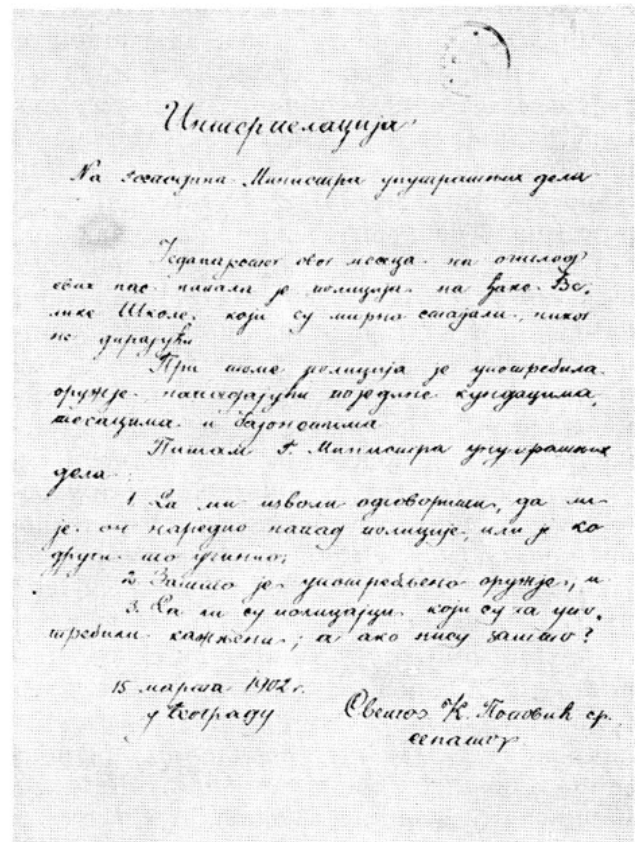 Интерпелација
На господина Министра унутрашњих дела
Једанајстог овог месеца на
нас напала је полиција на ђаке Ве-
лике Школе, који су мирно стајали, никог
не дирајући.
При томе полиција је употребила
оружје нападајући поједине кундацима,
тесацима и бајонетима
Питам Г. Министра унутрашњих
дела:
1. Да ми изволи одговорити, да ли
је он наредио напад полиције, или је ко
други то учинио;
2. Зашто је употребљено оружје; и
3. Да ли су полицајци који су га упо-
требили кажњени; а ако нису зашто?
15 марта 1902 г.
у Београду
К. Поповић ср.
сенатор